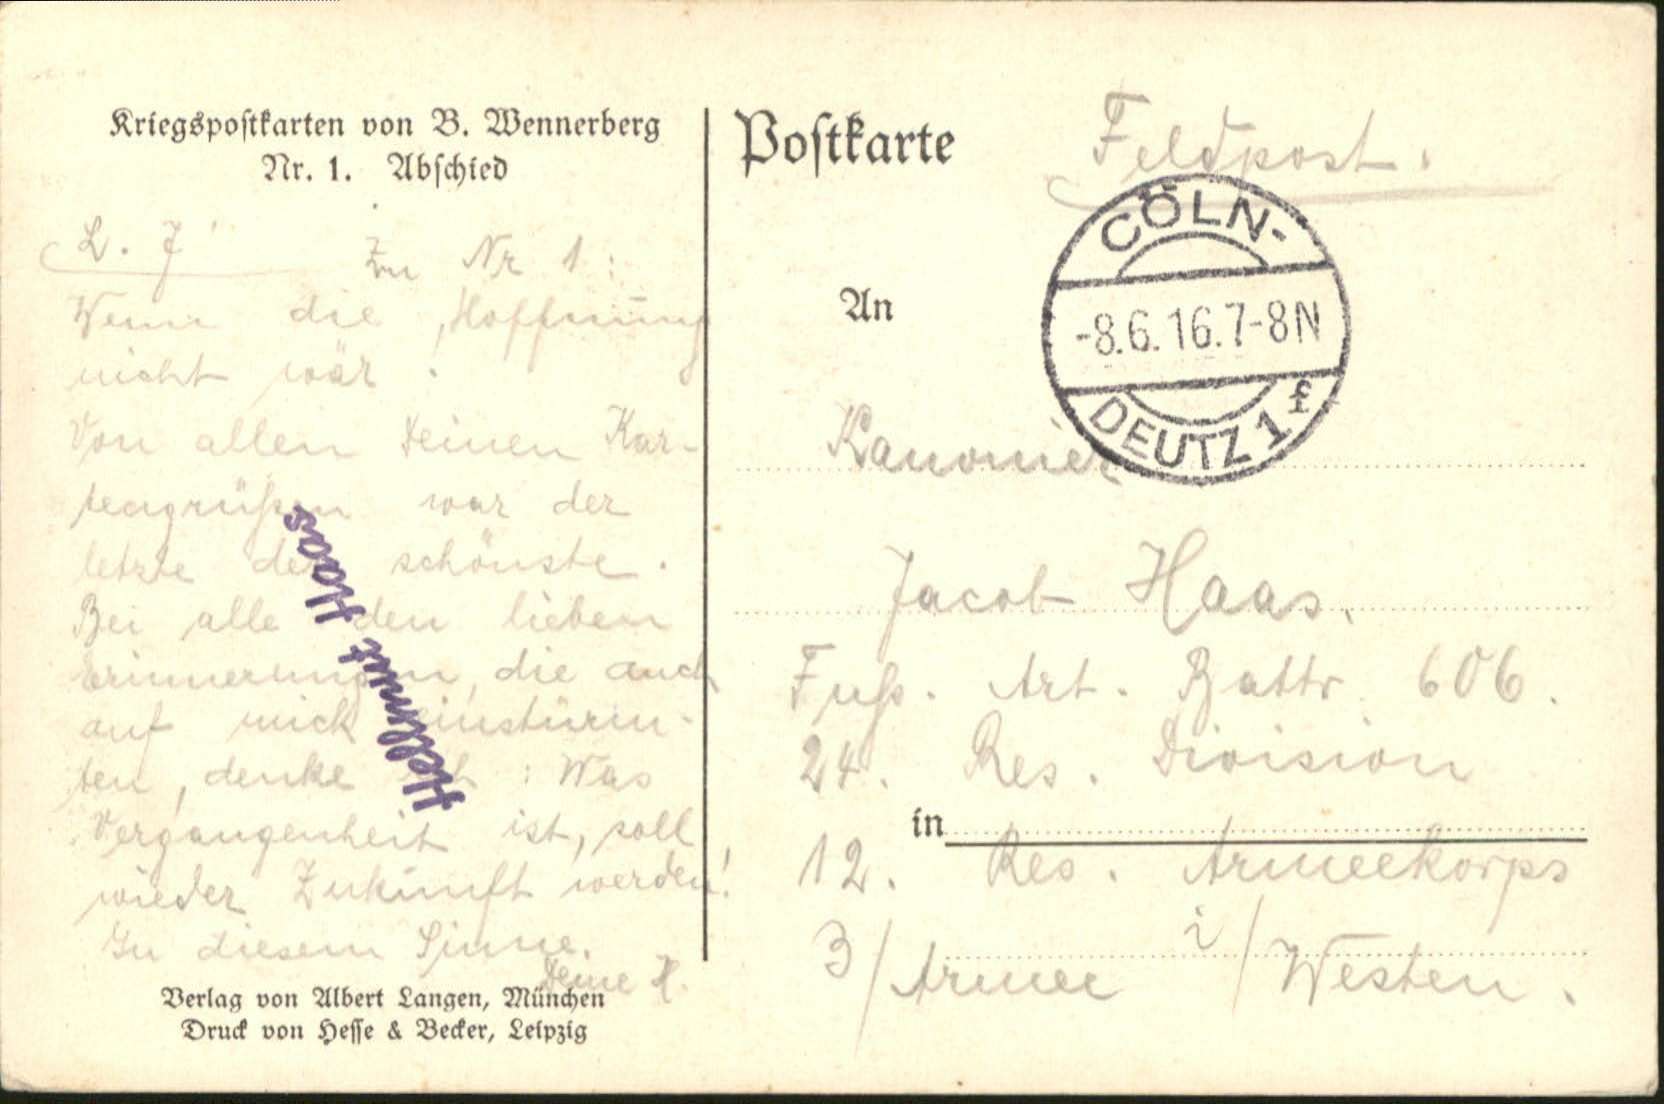 Kriegspostkarten von B. Wennerberg
Nr. 1. Abschied
L. J
Zu Nr 1:
Wenn die Hoffnung
nicht wär.
Von allen Deinen Kar-
tengrüßen war der
letzte der schönste.
Bei alle den lieben
Erinnerungen, die auch
auf mich einstürm-
ten, denke ich: Was
Vergangenheit ist, soll
wieder Zukunft werden!
In diesem Sinne.
Deine H.
Verlag von Albert Langen, München
Druck von Hesse & Becker, Leipzig
Hellmut Haas
Postkarte
Feldpost.
CÖLN-
-8.6.16.7-8N
DEUTZ 1 f
An
Kanonier
Jacob Haas.
Fuß. Art. Battr. 606.
24. Res. Division
in
12. Res. Armeekorps
3/Armee i/Westen.